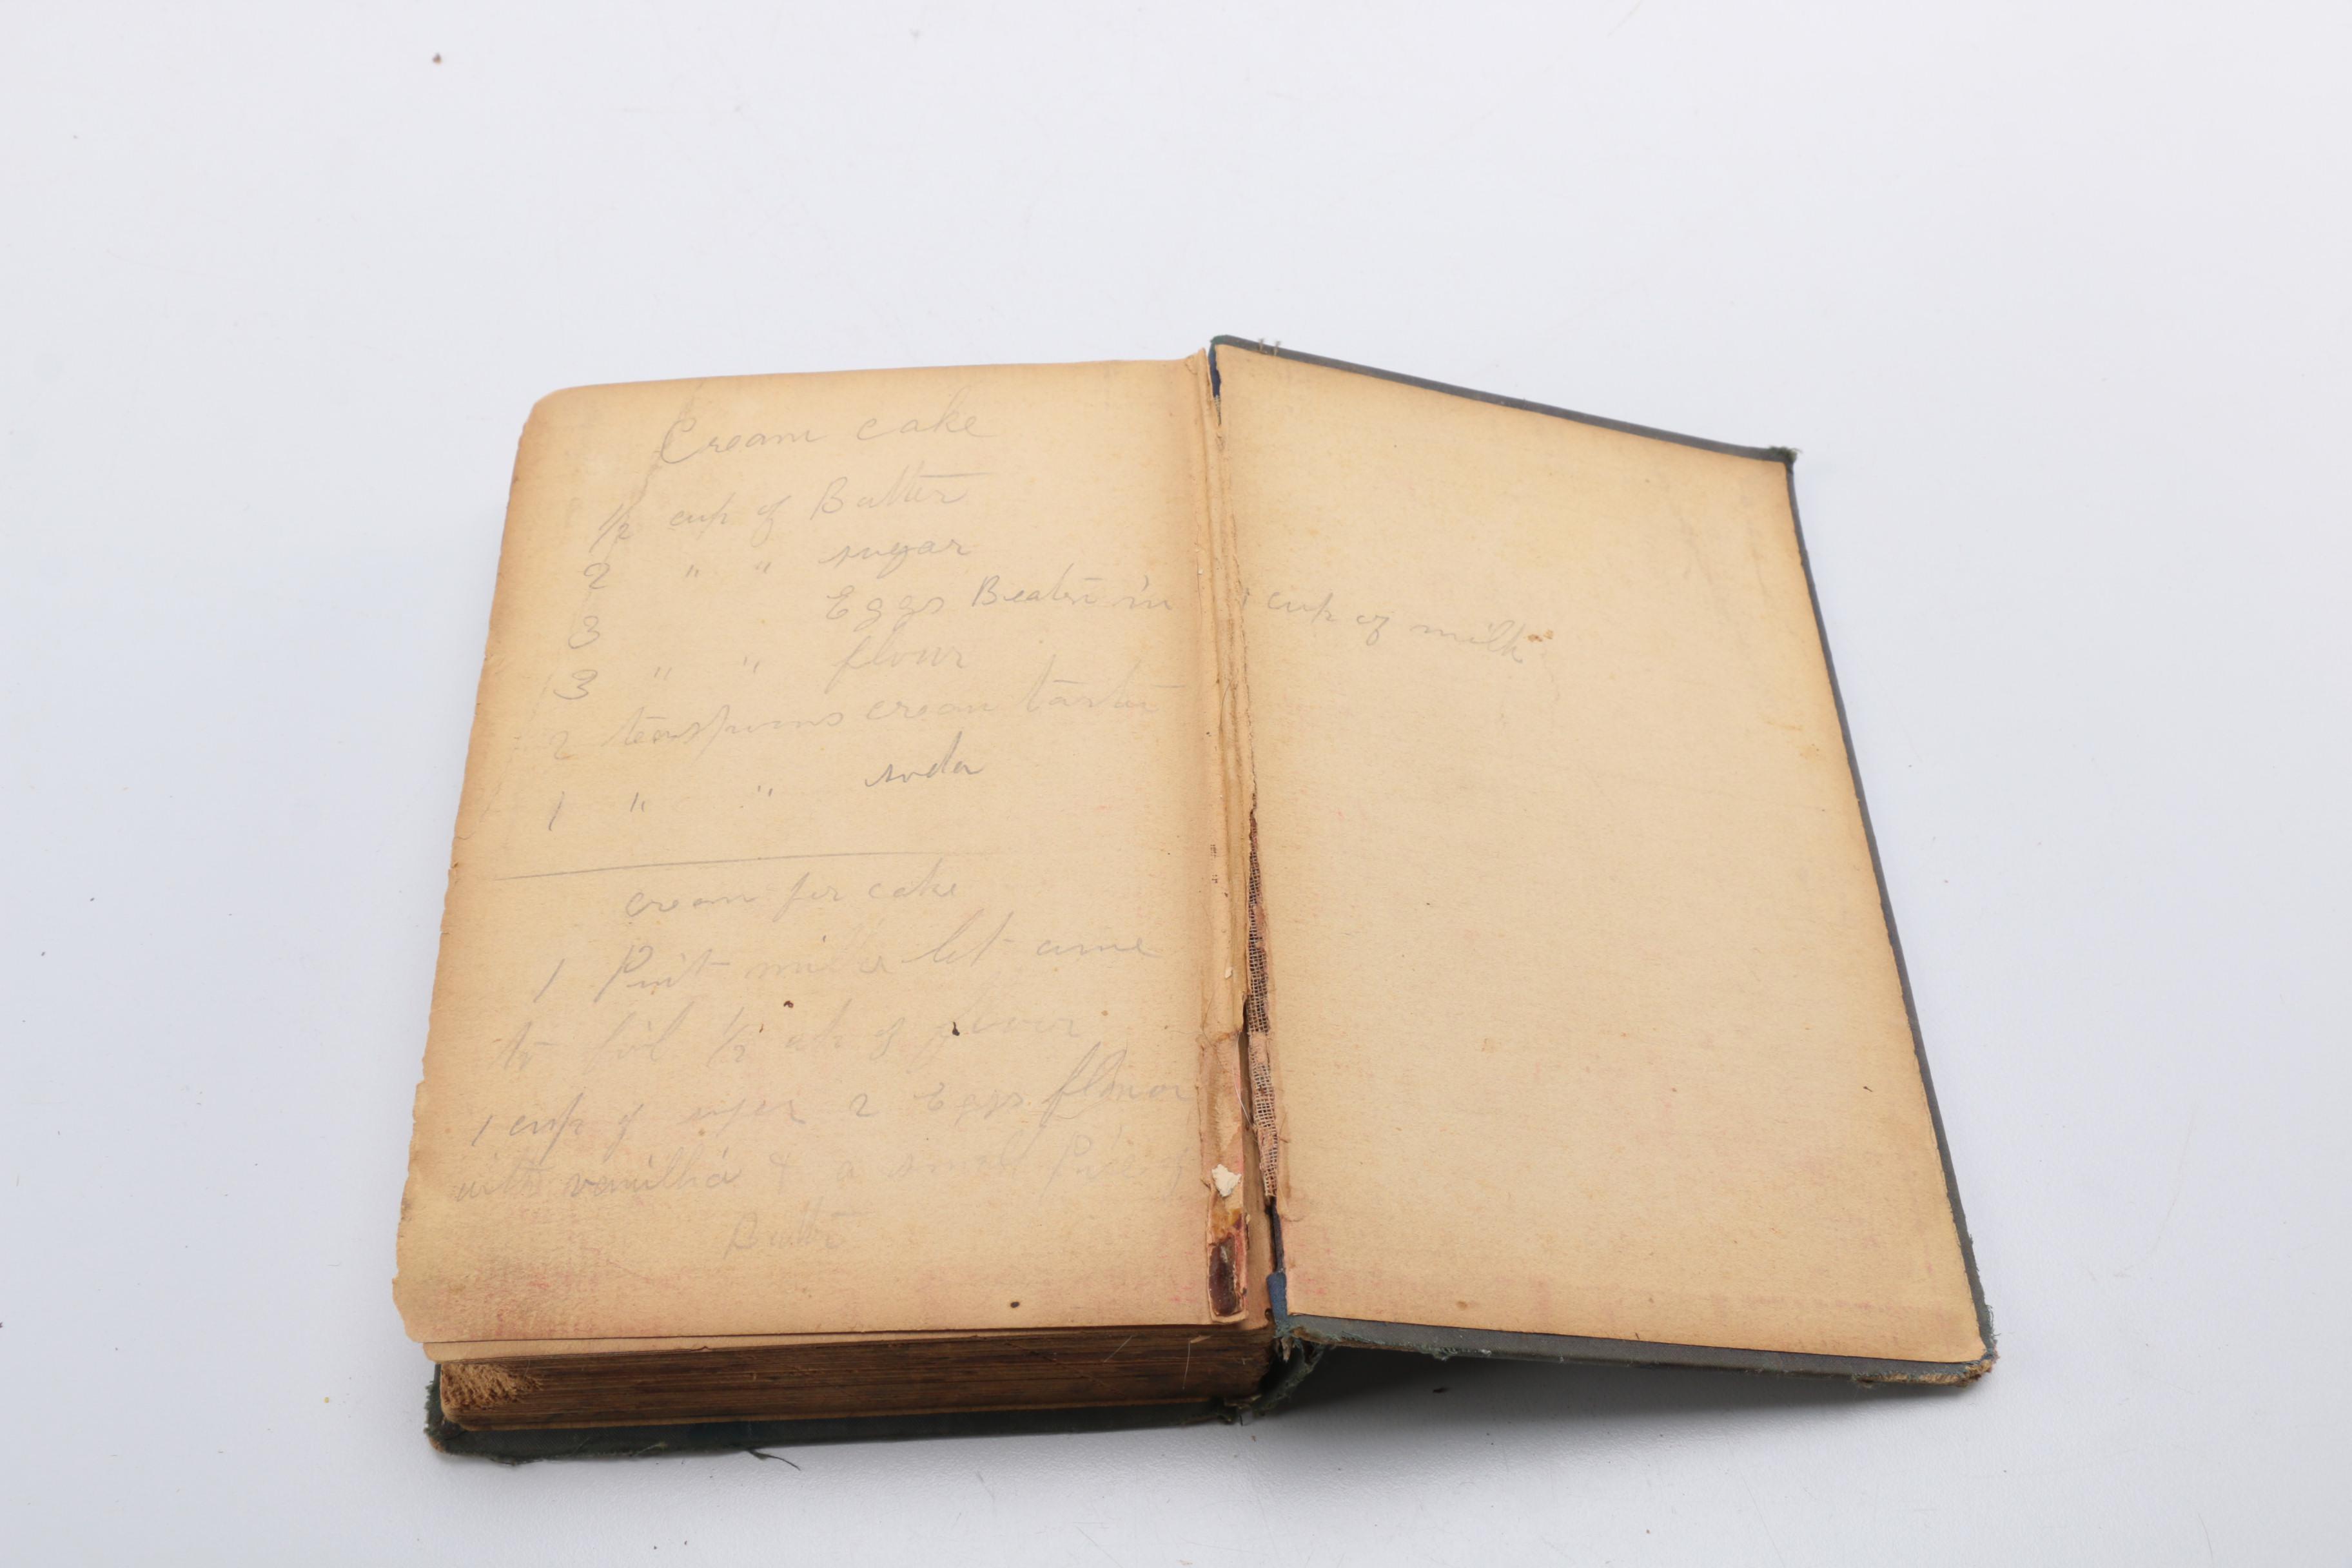 Cream cake
1/2 cup of Butter
2 " " sugar
3 Eggs Beaten in 1 cup of milk
3 " " flour
2 teaspoons cream tartar
1 " " soda
cream for cake
1 Pint milk let come
to boil 1/2 cup of flour
1 cup of sugar 2 Eggs flavor
with vanilla & a small Piece of
Butter